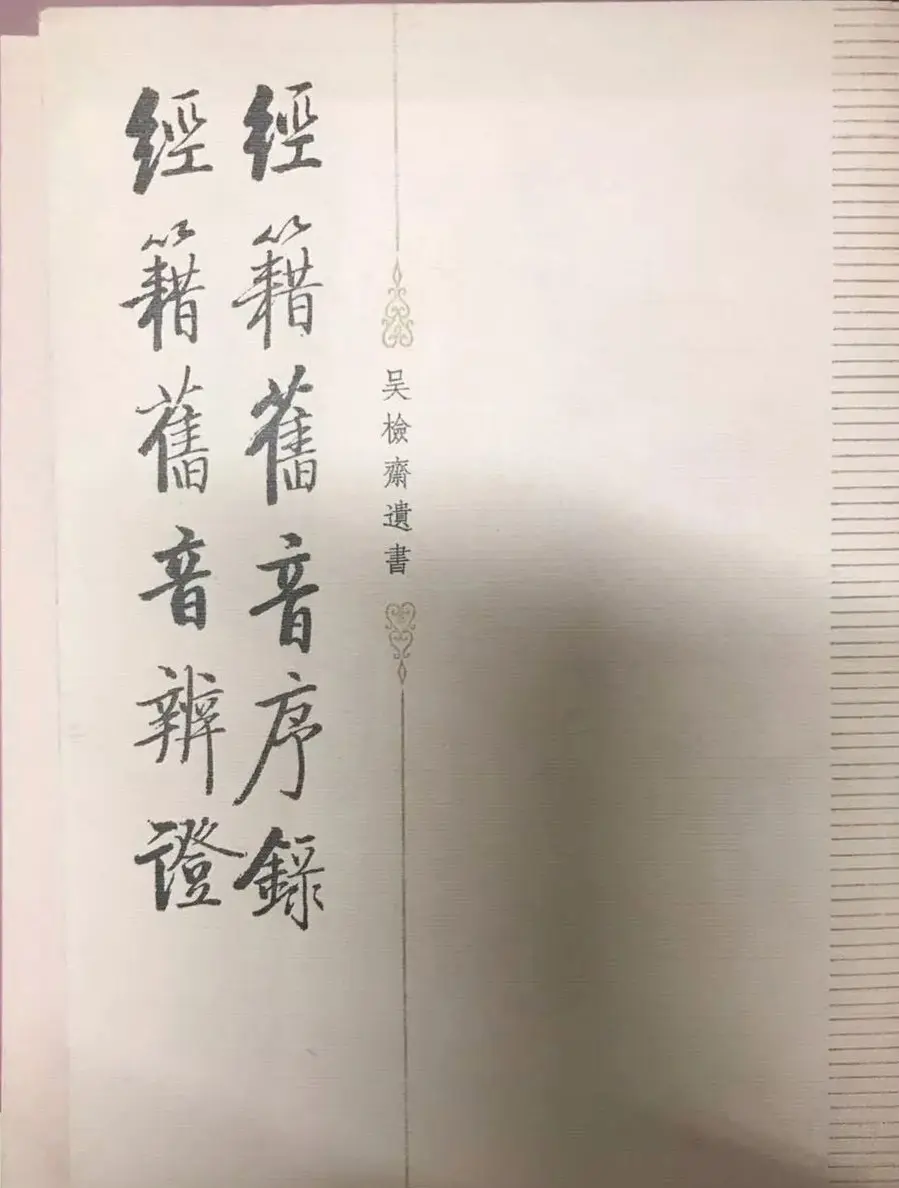 吴檢齋遺書
經籍舊音序録
經籍舊音辨證